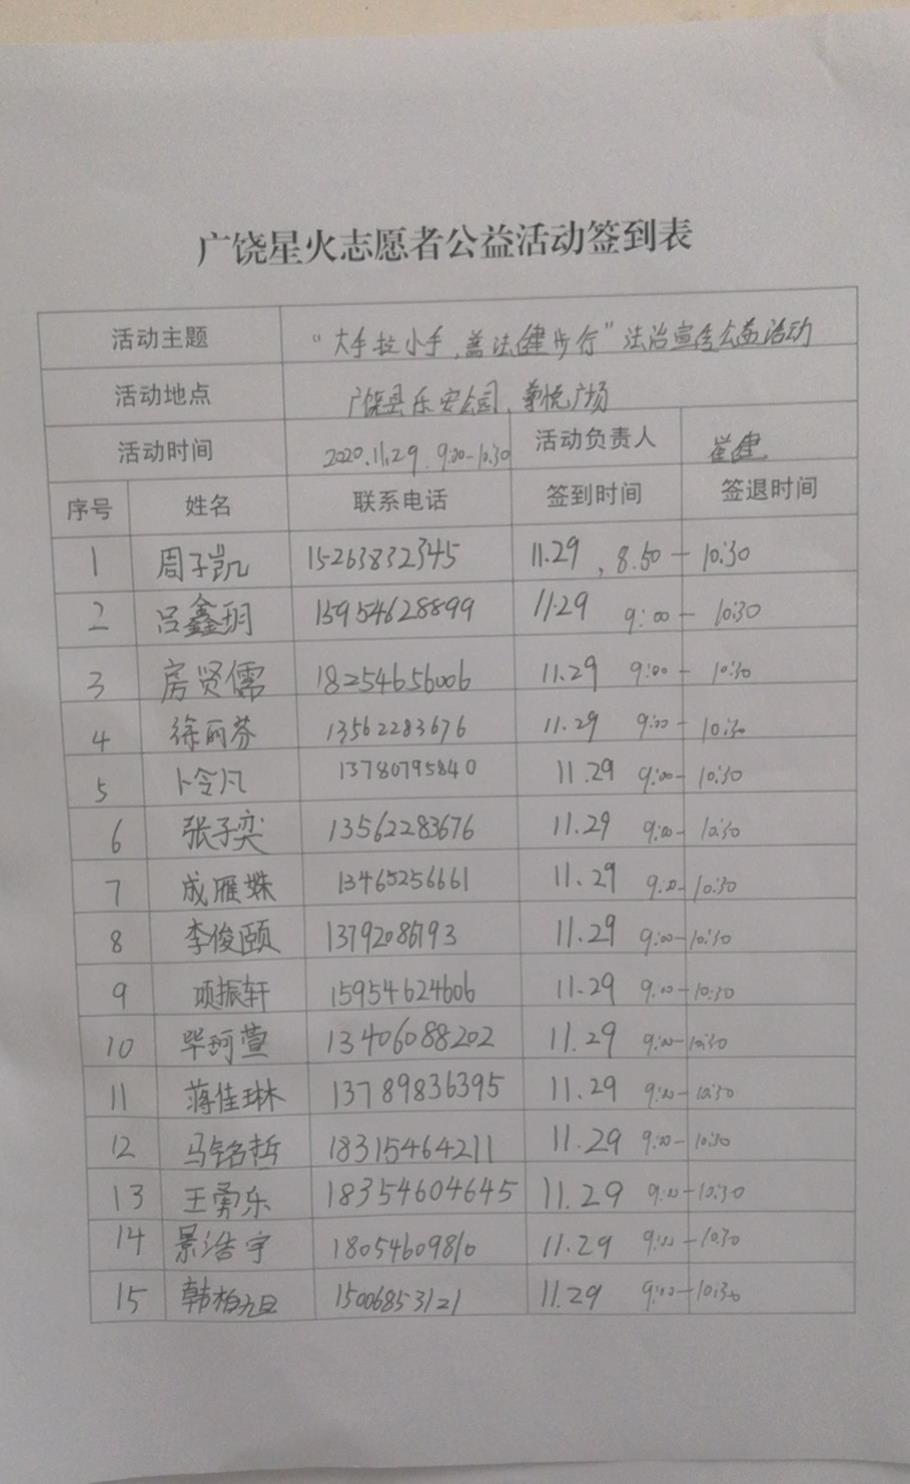 广饶星火志愿者公益活动签到表
活动主题 “大手拉小手，普法健步行”法治宣传公益活动
活动地点 广饶县乐安公园、月悦广场
活动时间 2020.11.29. 9:00-10:30 活动负责人 崔健
序号 姓名 联系电话 签到时间 签退时间
1 周子凯 15263832345 11.29, 8.50 - 10:30
2 吕鑫玥 15954628899 11.29 9:00 - 10:30
3 房贤儒 18254656006 11.29 9:00 - 10:30
4 徐丽芬 13562283676 11.29 9:00 - 10:30
5 卜令凡 13780795840 11.29 9:00- 10:30
6 张子奕 13562283676 11.29 9:00- 10:30
7 成雁姝 13465256661 11.29 9:00-10:30
8 李俊颐 13792086793 11.29 9:00-10:30
9 项振轩 15954624606 11.29 9:00-10:30
10 毕珂萱 13406088202 11.29 9:00-10:30
11 蒋佳琳 13789836395 11.29 9:00-10:30
12 马铭哲 18315464211 11.29 9:00-10:30
13 王勇乐 18354604645 11.29 9:00-10:30
14 景浩宇 18054609810 11.29 9:00-10:30
15 韩柏旭 15006853121 11.29 9:00-10:30